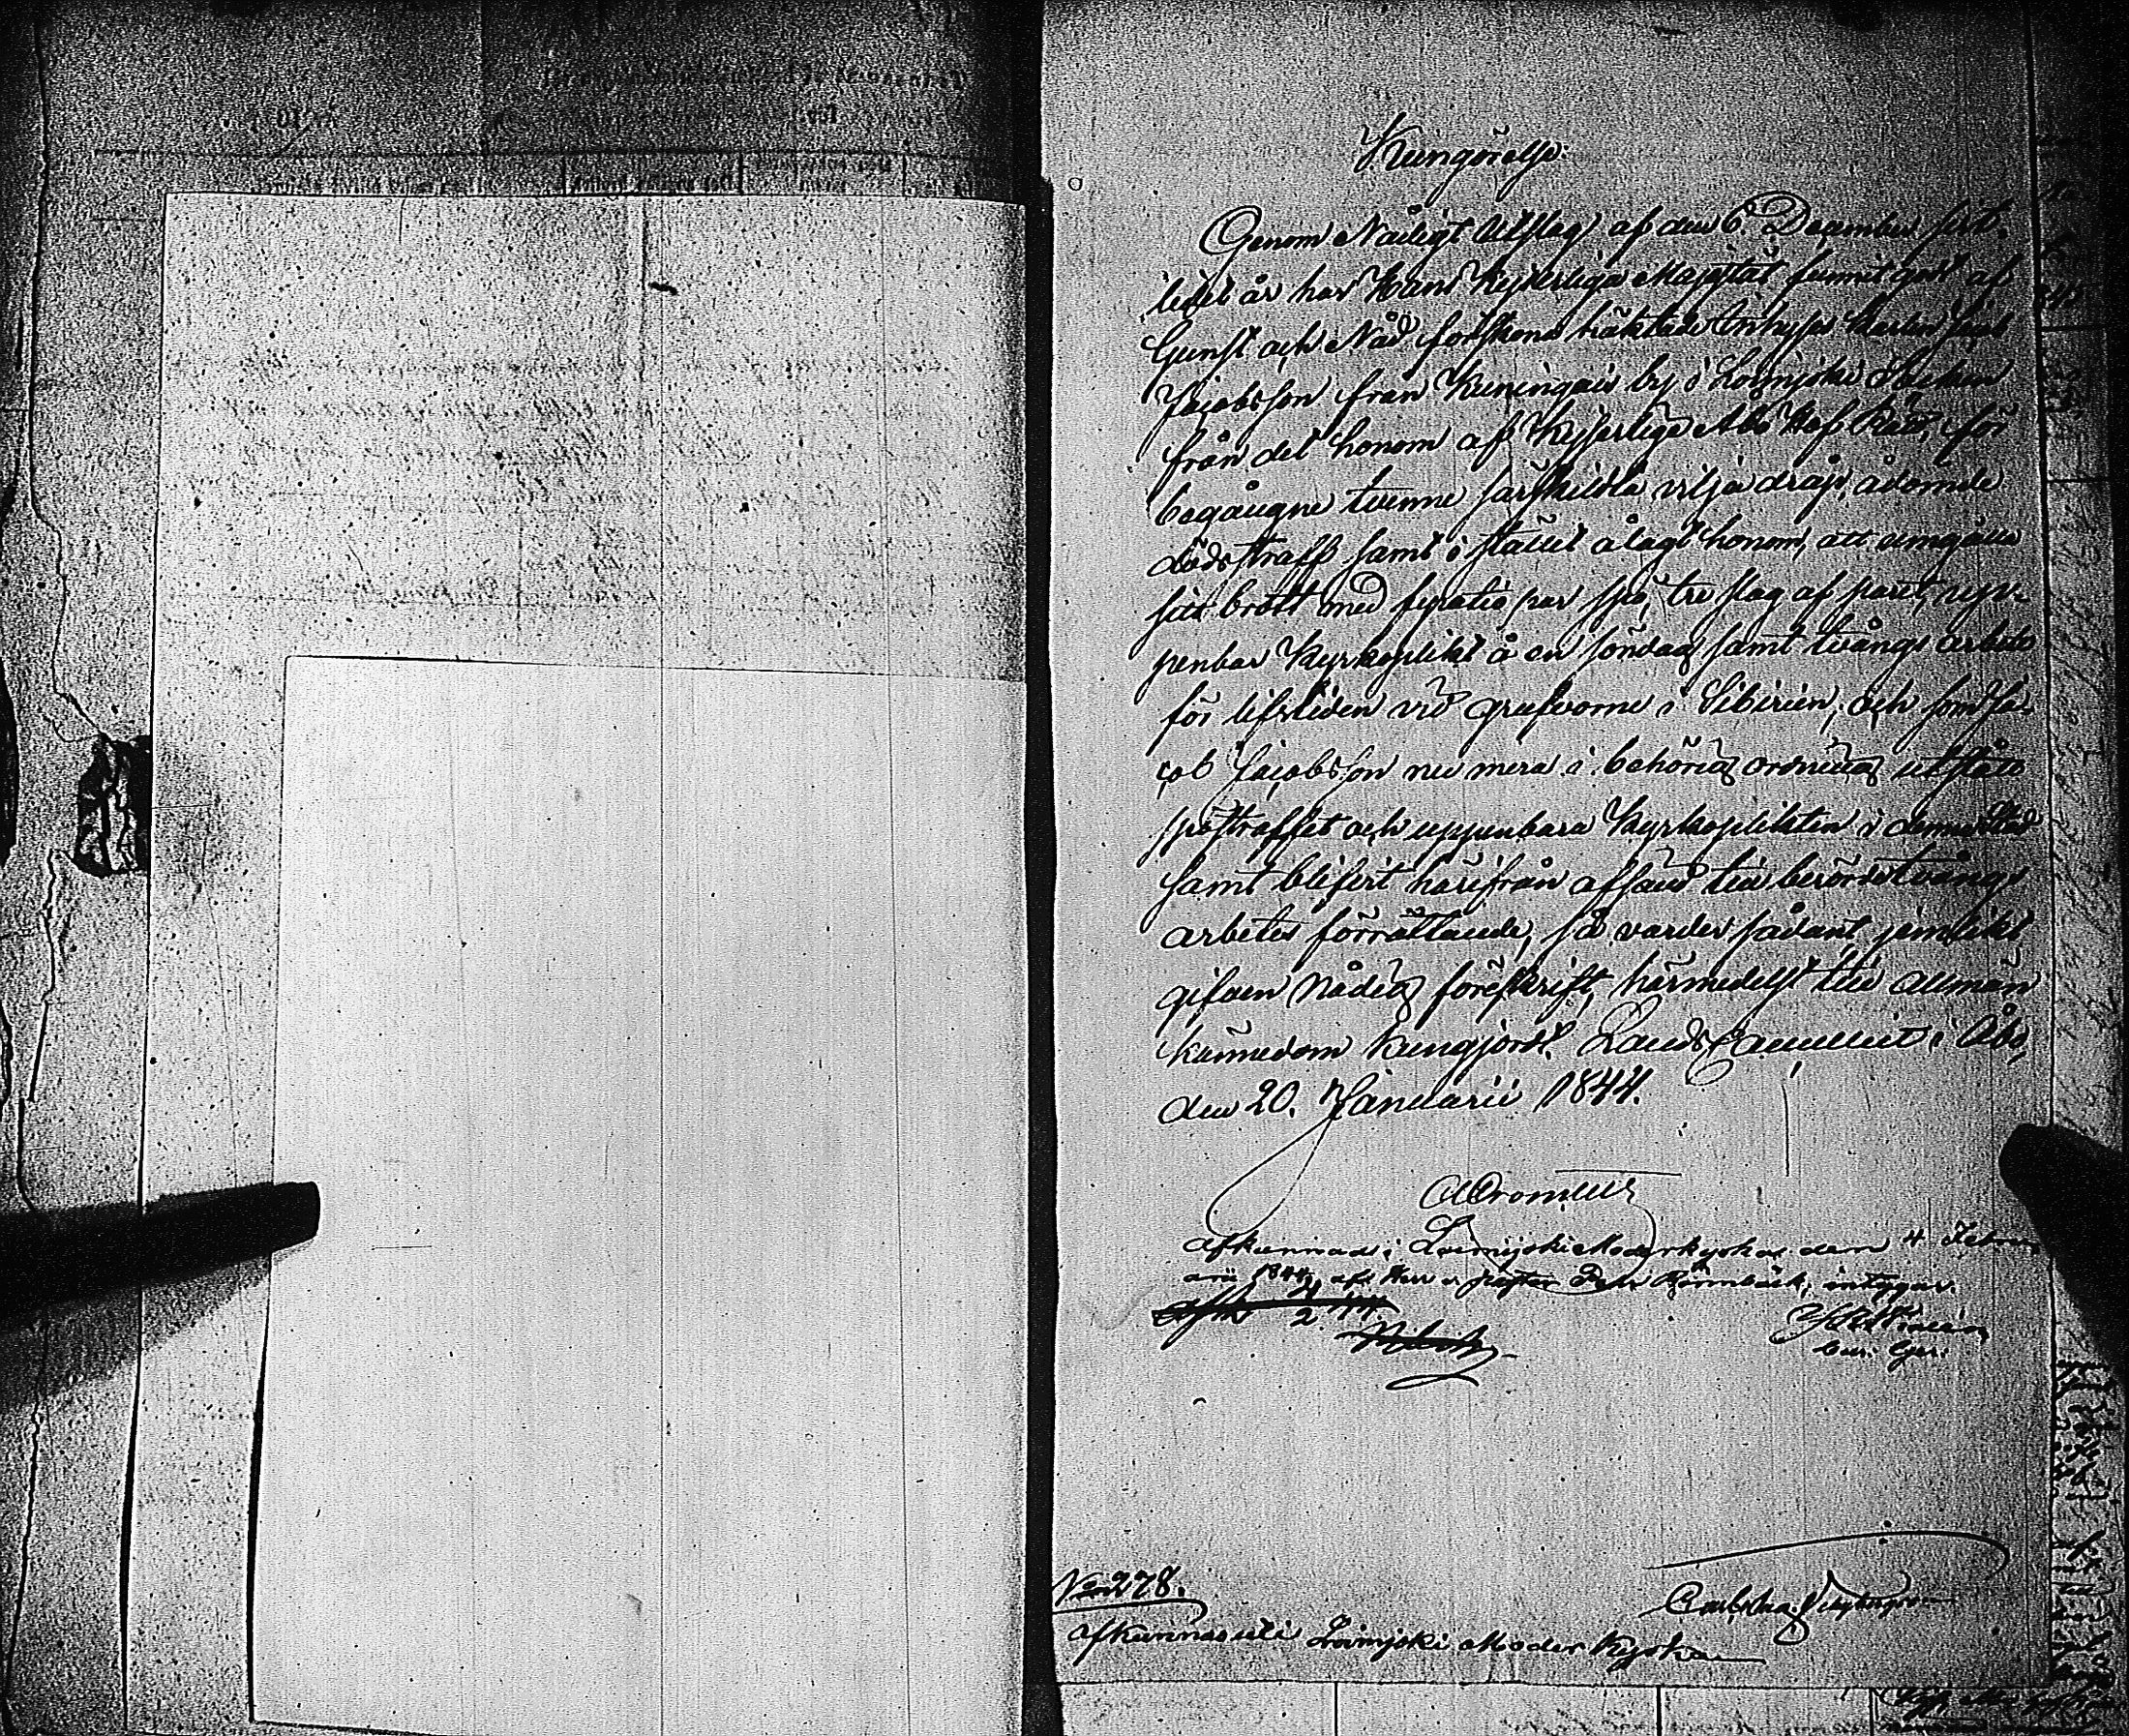 Kungörelse.
Genom Nådigt Utslag af den 6 December sist-
lidet år har Hans Kejserliga Majestät funnit godt af
Gunst och Nåd förskona häktade Inhyses Karlen Jacob
Jacobsson från Kuningais by i Loimjoki Socken
från det honom af Kejserliga Åbo Hof Rätt, för
begångne tvenne särskildta vilja dråp, ådömde
dödsstraff samt i stället ålagt honom, att umgälla
sitt brott med fyratio par spö, tre slag af paret, up-
penbar Kyrkoplikt å en söndag samt tvångs arbete
för lifstiden vid grufvorne i Sibirien; och som Ja-
cob Jacobsson nu mera i behörig ordning utstått
spöstraffet och uppenbara Kyrkoplikten i denna Stad
samt blifvit härifrån afsänd till berörde tvångs
arbetes förrättande, så varder sådant, jemlikt
gifven nådig föreskrift, härmedelst till allmän
kännedom kungjordt. Lands Cancelliet i Åbo,
den 20. Januarii 1844.
afkunnad i Loimijoki Moderkyrka den 4 Febru-
arii 1844, af Herr intygar.
No 278.
afkunnas uti Loimjoki Moder Kyrka